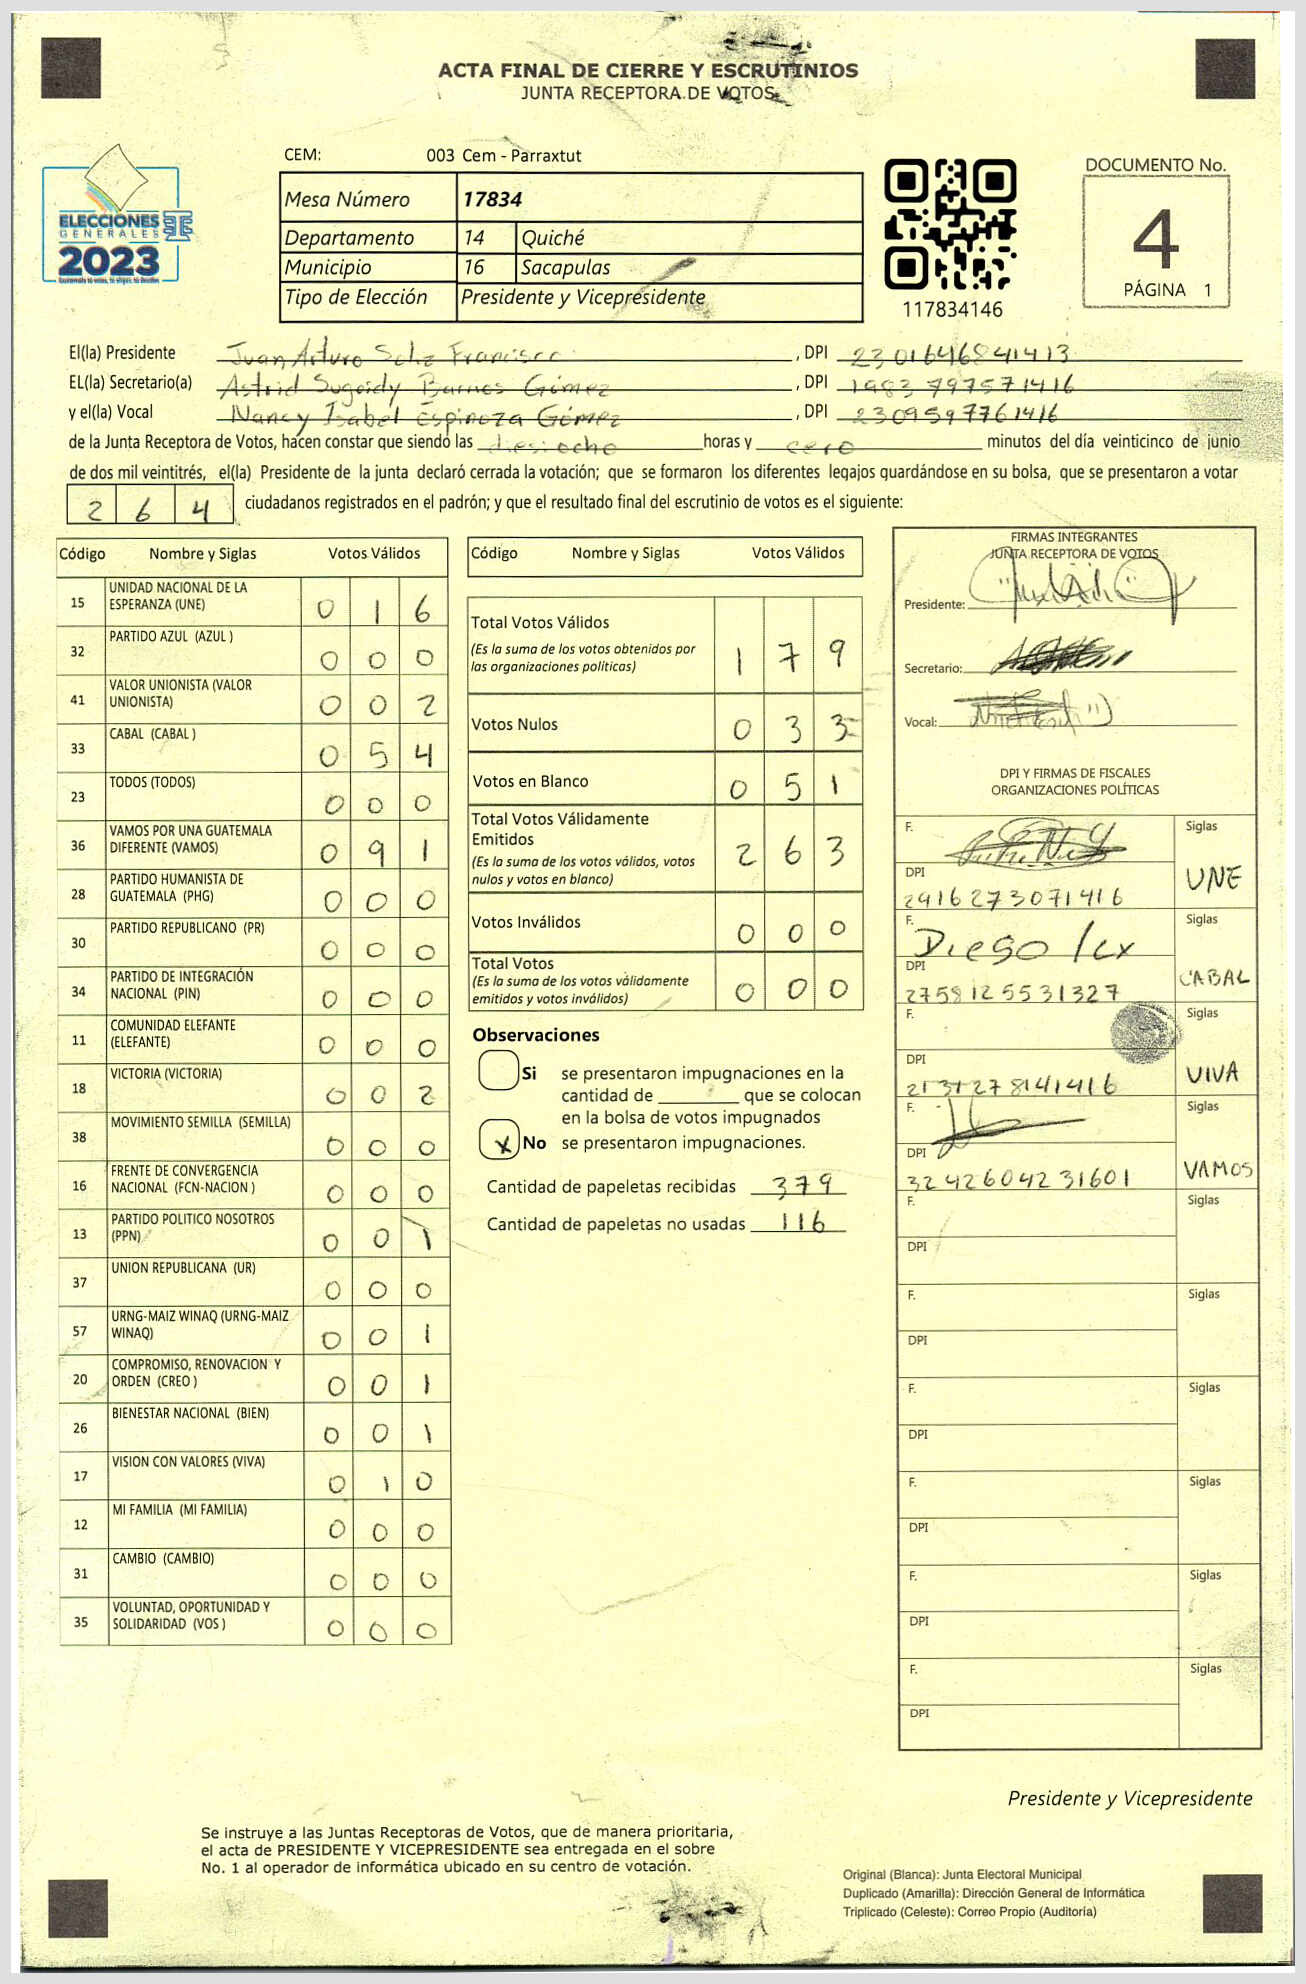 ACTA FINAL DE CIERRE Y ESCRUTINIOS
JUNTA RECEPTORA DE VOTOS
CEM: 003 Cem - Parraxtut
ELECCIONES
GENERALES
2023
Mesa Número 17834
Departamento 14 Quiché
Municipio 16 Sacapulas
Tipo de Elección Presidente y Vicepresidente
117834146
DOCUMENTO No.
4
PÁGINA 1
El(la) Presidente Juan Arturo Francisco , DPI 2301646841413
EL(la) Secretario(a) Astrid Sugeidy Barnos Gómez , DPI 1983797571416
y el(la) Vocal Nancy Isabel Espinoza Gómez , DPI 2309597761416
de la Junta Receptora de Votos, hacen constar que siendo las diesiocho horas y cero minutos del día veinticinco de junio
de dos mil veintitrés, el(la) Presidente de la junta declaró cerrada la votación; que se formaron los diferentes legajos quardándose en su bolsa, que se presentaron a votar
2 6 4 ciudadanos registrados en el padrón; y que el resultado final del escrutinio de votos es el siguiente:
Código Nombre y Siglas Votos Válidos
15 UNIDAD NACIONAL DE LA
ESPERANZA (UNE) 0 1 6
32 PARTIDO AZUL (AZUL ) 0 0 0
41 VALOR UNIONISTA (VALOR
UNIONISTA) 0 0 2
33 CABAL (CABAL ) 0 5 4
23 TODOS (TODOS) 0 0 0
36 VAMOS POR UNA GUATEMALA
DIFERENTE (VAMOS) 0 9 1
28 PARTIDO HUMANISTA DE
GUATEMALA (PHG) 0 0 0
30 PARTIDO REPUBLICANO (PR) 0 0 0
34 PARTIDO DE INTEGRACIÓN
NACIONAL (PIN) 0 0 0
11 COMUNIDAD ELEFANTE
(ELEFANTE) 0 0 0
18 VICTORIA (VICTORIA) 0 0 2
38 MOVIMIENTO SEMILLA (SEMILLA) 0 0 0
16 FRENTE DE CONVERGENCIA
NACIONAL (FCN-NACION ) 0 0 0
13 PARTIDO POLITICO NOSOTROS
(PPN) 0 0 1
37 UNION REPUBLICANA (UR) 0 0 0
57 URNG-MAIZ WINAQ (URNG-MAIZ
WINAQ) 0 0 1
20 COMPROMISO, RENOVACION Y
ORDEN (CREO ) 0 0 1
26 BIENESTAR NACIONAL (BIEN) 0 0 1
17 VISION CON VALORES (VIVA) 0 1 0
12 MI FAMILIA (MI FAMILIA) 0 0 0
31 CAMBIO (CAMBIO) 0 0 0
35 VOLUNTAD, OPORTUNIDAD Y
SOLIDARIDAD (VOS ) 0 0 0
Código Nombre y Siglas Votos Válidos
Total Votos Válidos
(Es la suma de los votos obtenidos por
las organizaciones políticas) 1 7 9
Votos Nulos 0 3 3
Votos en Blanco 0 5 1
Total Votos Válidamente
Emitidos
(Es la suma de los votos válidos, votos
nulos y votos en blanco) 2 6 3
Votos Inválidos 0 0 0
Total Votos
(Es la suma de los votos válidamente
emitidos y votos inválidos) 0 0 0
Observaciones
Si se presentaron impugnaciones en la
cantidad de ________ que se colocan
en la bolsa de votos impugnados
X No se presentaron impugnaciones.
Cantidad de papeletas recibidas 379
Cantidad de papeletas no usadas 116
FIRMAS INTEGRANTES
JUNTA RECEPTORA DE VOTOS
Presidente:
Secretario:
Vocal:
DPI Y FIRMAS DE FISCALES
ORGANIZACIONES POLÍTICAS
F. Siglas
DPI UNE
2916273071416
F. Diego Siglas
DPI CABAL
2758125531327
F. Siglas
DPI VIVA
2131278141416
F. Siglas
DPI VAMOS
3242604231601
F. Siglas
DPI
F. Siglas
DPI
F. Siglas
DPI
F. Siglas
DPI
F. Siglas
DPI
F. Siglas
DPI
Presidente y Vicepresidente
Se instruye a las Juntas Receptoras de Votos, que de manera prioritaria,
el acta de PRESIDENTE Y VICEPRESIDENTE sea entregada en el sobre
No. 1 al operador de informática ubicado en su centro de votación.
Original (Blanca): Junta Electoral Municipal
Duplicado (Amarilla): Dirección General de Informática
Triplicado (Celeste): Correo Propio (Auditoría)